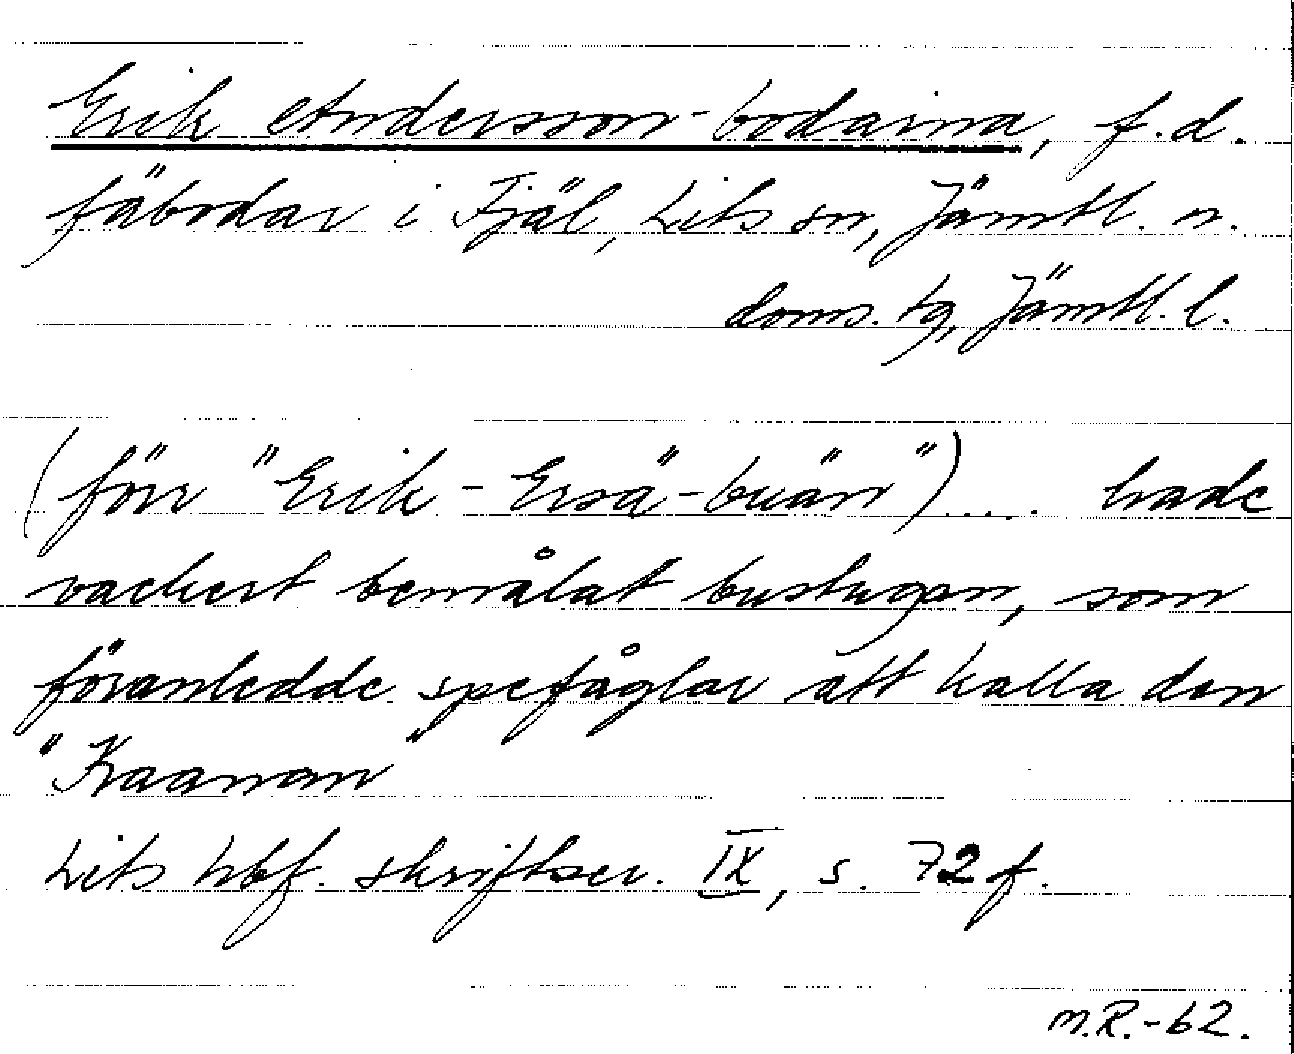 Erik Andersson-bodarna, f.d.
fäbodar i Fjäl, Lits sn, Jämtl. n.
doms. tg, Jämtl. l.
(förr "Erik-Ersä-buän")..... hade
vackert bemålat bustugan, som
föranledde spefåglar att kalla den
"Kaanan"
Lits hbf. skriftser. IX, s. 72 f.
M.R.-62.